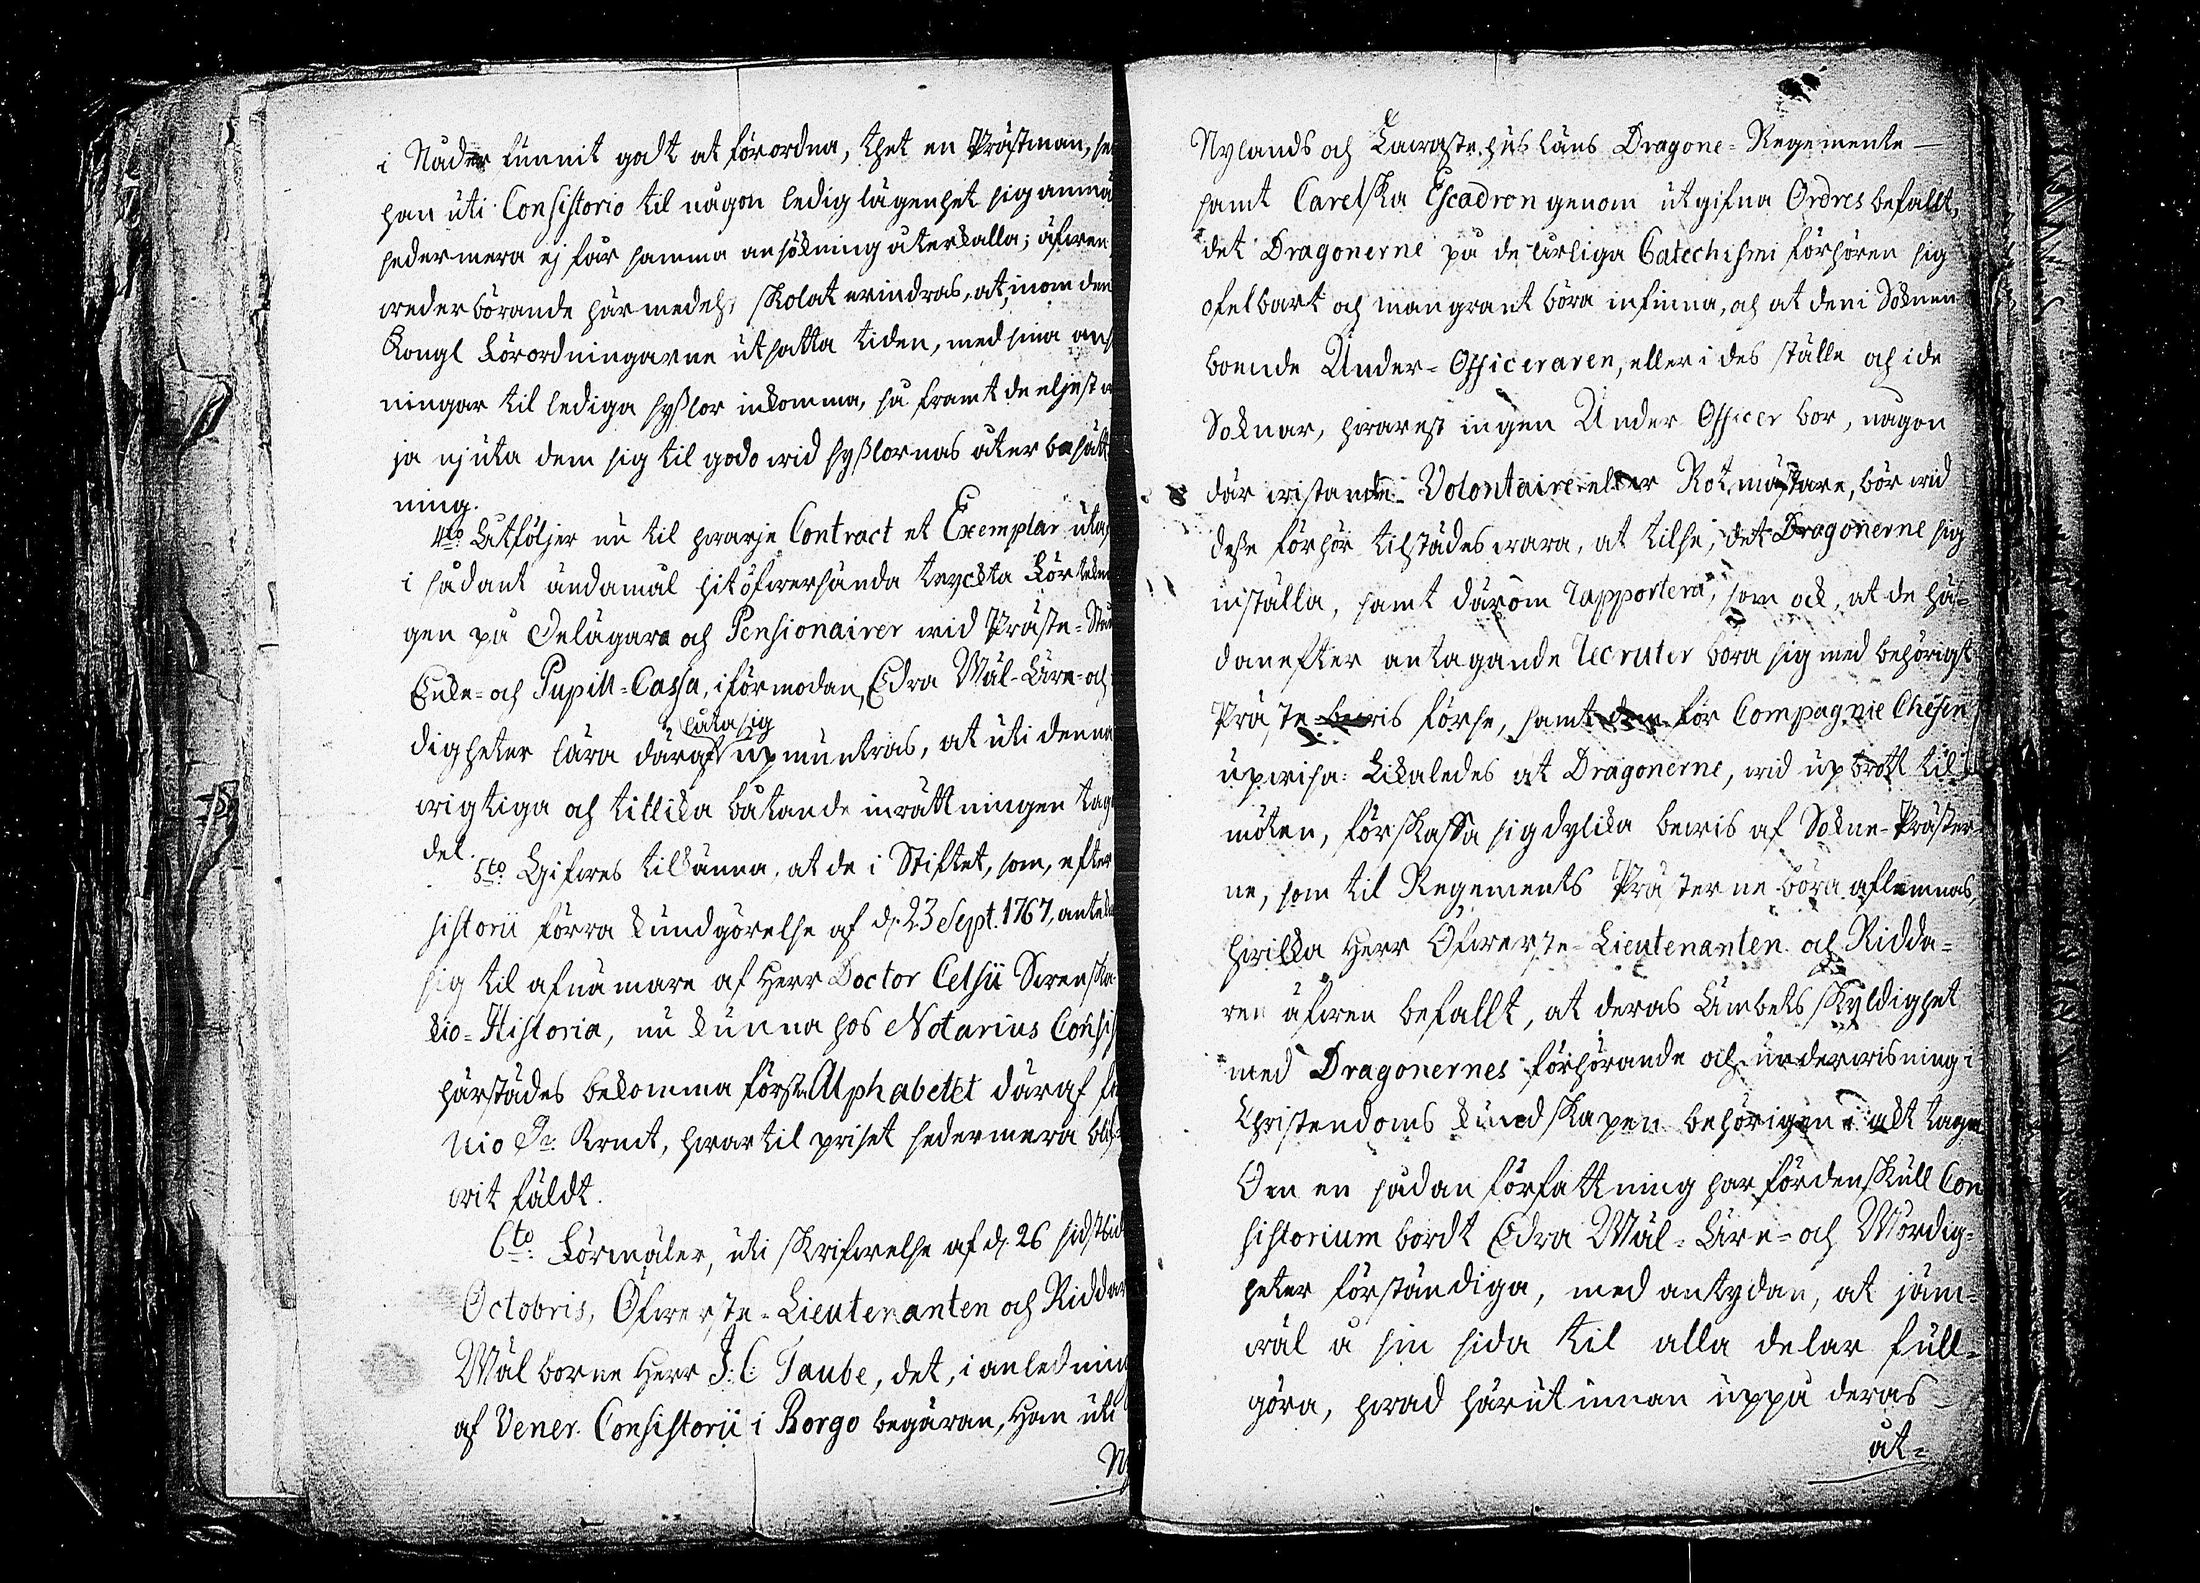 i Nåder funnit godt at förordna, thet en Prästman, se
han uti Consistorio til någon ledig lägenhet sig anmä
sedermera ej får samma ansökning återkalla; äfwen
wederbörande härmedelst skolat erindras, at, inom den
Kongl Förordningarne utsatta tiden, med sina ans
ningar til lediga sysslor inkomma, så framt de eljest
ja njuta dem sig til godo wid sysslornas återbesätt
ning.
4to. Utföljer nu til hwarje Contract et Exemplar uta
i sådant ändamål hitöfwersända tryckta Förtekni
gen på Delägare och Pensionairer wid Präste-
Enke- och Pupill-Cassa, i förmodan, Edra Wäl-Äre- och
låta sig
digheter lära däraf upmuntras, at uti denna
wigtiga och tillika båtande inrättningen tag
del.
5to. Gifwes tilkänna, at de i Stiftet, som, efter
sistorii förra kundgörelse af d. 23 Sept. 1767, antekn
sig til afnämare af Herr Doctor Celsii Swenska
kio-Historia, nu kunna hos Notarius Consis
härstädes bekomma första Alphabetet däraf
Nio Dr. Kmt, hwartil priset sedermera blif
wit fäldt.
6to. Förmäler, uti skrifwelse af d. 26 sidstled
Octobris, Öfwerste-Lieutenanten och Riddar
Wälborne Herr J: C: Taube, det, i anlednin
af Vener. Consistorii i Borgo begäran, Han uti
Ny
Nylands och Tawastehus Läns Dragone-Regemente
samt Carelska Escadron genom utgifna Ordres befallt,
det Dragonerne på de årliga Catechismi förhören sig
ofelbart och mangrant böra infinna, och at den i Soknen
boende Under-Officeraren, eller i des ställe och i de
Soknar, hwarest ingen Under Officer bor, någon
där wistande Volontaire eller Rotmästare, bör wid
desse förhör tilstädes wara, at tilse, det Dragonerne sig
inställa, samt därom rapportera, som ock, at de hä-
danefter antagande Recruter böra sig med behörigt
Präste bewis förse, samt för Compagnie Chefen
upwisa: Likaledes at Dragonerne, wid upbrott til
möten, förskaffa sig dylika bewis af Sokne-Präster-
ne, som til Regements Prästerne böra aflemnas,
hwilka Herr Öfwerste-Lieutenanten och Ridda-
ren äfwen befallt, at deras Ämbets skyldighet
med Dragonernes förhörande och underwisning i
Christendoms kundskapen behörigen i akt taga
Om en sådan författning har fördenskull Con
sistorium bordt Edra Wäl-Äre- och Wördig-
heter förständiga, med antydan, at jäm-
wäl å sin sida til alla delar full-
göra, hwad härutinnan uppå deras
åt-